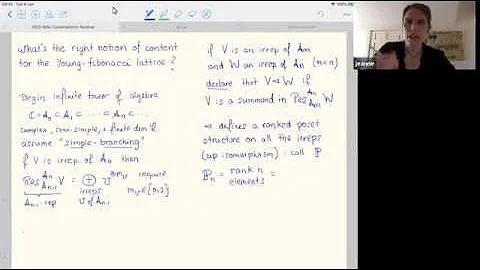 What's the right notion of content
for the Young-Fibonacci lattice?
Begin infinite tower of algebra
ℂ = A₀ ⊂ A₁ ⊂ ... ⊂ Aₙ ⊂ ...
Complex, semi-simple, + finite dim'l
assume "simple-branching"
if V is irrep. of Aₙ then
Res V = ⊕ U require
Aₙ₋₁ rep irreps U of Aₙ₋₁ ∈ {0,1}
if V is an irrep of Aₘ
and W an irrep of Aₙ (m<n)
declare that V W if
V is a summand in Res W
⇒ defines a ranked poset
structure on all the irreps
(up-isomorphism) : call ℙ
ℙₙ = rank n
elements =
jeanne